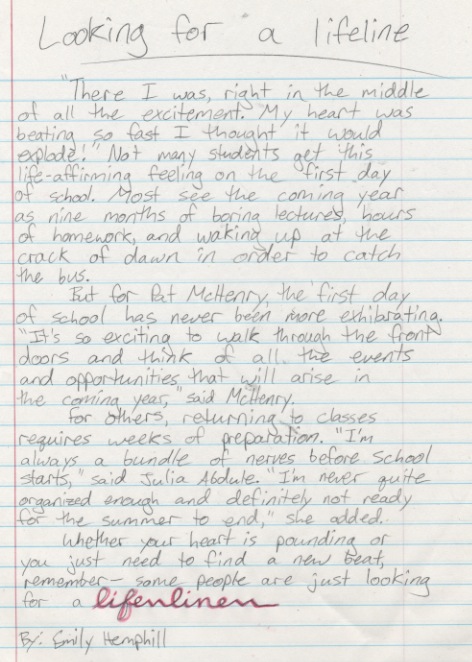 Looking for a lifeline
"There I was, right in the middle
of all the excitement. My heart was
beating so fast I thought it would
explode!" Not many students get this
life-affirming feeling on the first day
of school. Most see the coming year
as nine months of boring lectures, hours
of homework, and waking up at the
crack of dawn in order to catch
the bus.
But for Pat McHenry, the first day
of school has never been more exhibrating.
"It's so exciting to walk through the front
doors and think of all the events
and opportunities that will arise in
the coming year," said McHenry.
For others, returning to classes
requires weeks of preparation. "I'm
always a bundle of nerves before school
starts," said Julia Abdule. "I'm never quite
organized enough and definitely not ready
for the summer to end," she added.
Whether your heart is pounding or
you just need to find a new beat,
remember - some people are just looking
for a lifenlinen
By: Emily Hemphill